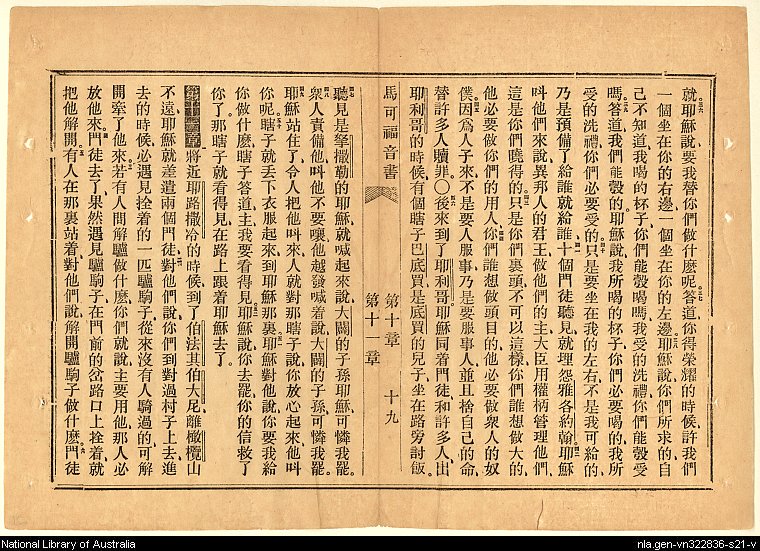 就耶穌說要我替你們做什麼呢答道你得榮耀的時候許我們
一個坐在你的右邊一個坐在你的左邊耶穌說你們所求的自
己不知道我喝的杯子你們能彀喝嗎我受的洗禮你們能彀受
嗎答道我們能彀的耶穌說我所喝的杯子你們必要喝的我所
受的洗禮你們必要受的只是要坐在我的左右不是我可給的
乃是預備了給誰就給誰十個門徒聽見就埋怨雅各約翰耶穌
叫他們來說異邦人的君王做他們的主大臣用權柄管理他們
這是你們曉得的只是你們裏頭不可以這樣你們誰想做大的
他必要做你們的用人你們誰想做頭目的他必要做衆人的奴
僕因爲人子來不是要人服事乃是要服事人並且捨自己的命
替許多人贖罪〇後來到了耶利哥耶穌同着門徒和許多人出
耶利哥的時候有個瞎子巴底買是底買的兒子坐在路旁討飯
馬可福音書 第十章 十九
第十一章
聽見是拏撒勒的耶穌就喊起來說大闢的子孫耶穌可憐我罷
衆人責備他叫他不要嚷他越發喊着說大闢的子孫可憐我罷
耶穌站住了令人把他叫來人就對那瞎子說你放心起來他叫
你呢瞎子就丟下衣服起來到耶穌那裏耶穌對他說你要我給
你做什麼瞎子答道主我要看得見耶穌說你去罷你的信救了
你了那瞎子就看得見在路上跟着耶穌去了
第十一章將近耶路撒冷的時候到了伯法其伯大尼離橄欖山
不遠耶穌就差遣兩個門徒對他們說你們到對過村子上去進
去的時候必遇見拴着的一匹驢駒子從來沒有人騎過的可解
開牽了他來若有人問解驢做什麼你們就說主要用他那人必
放他來門徒去了果然遇見驢駒子在門前的岔路口上拴着就
把他解開有人在那裏站着對他們說解開驢駒子做什麼門徒
National Library of Australia
nla.gen-vn322836-s21-v